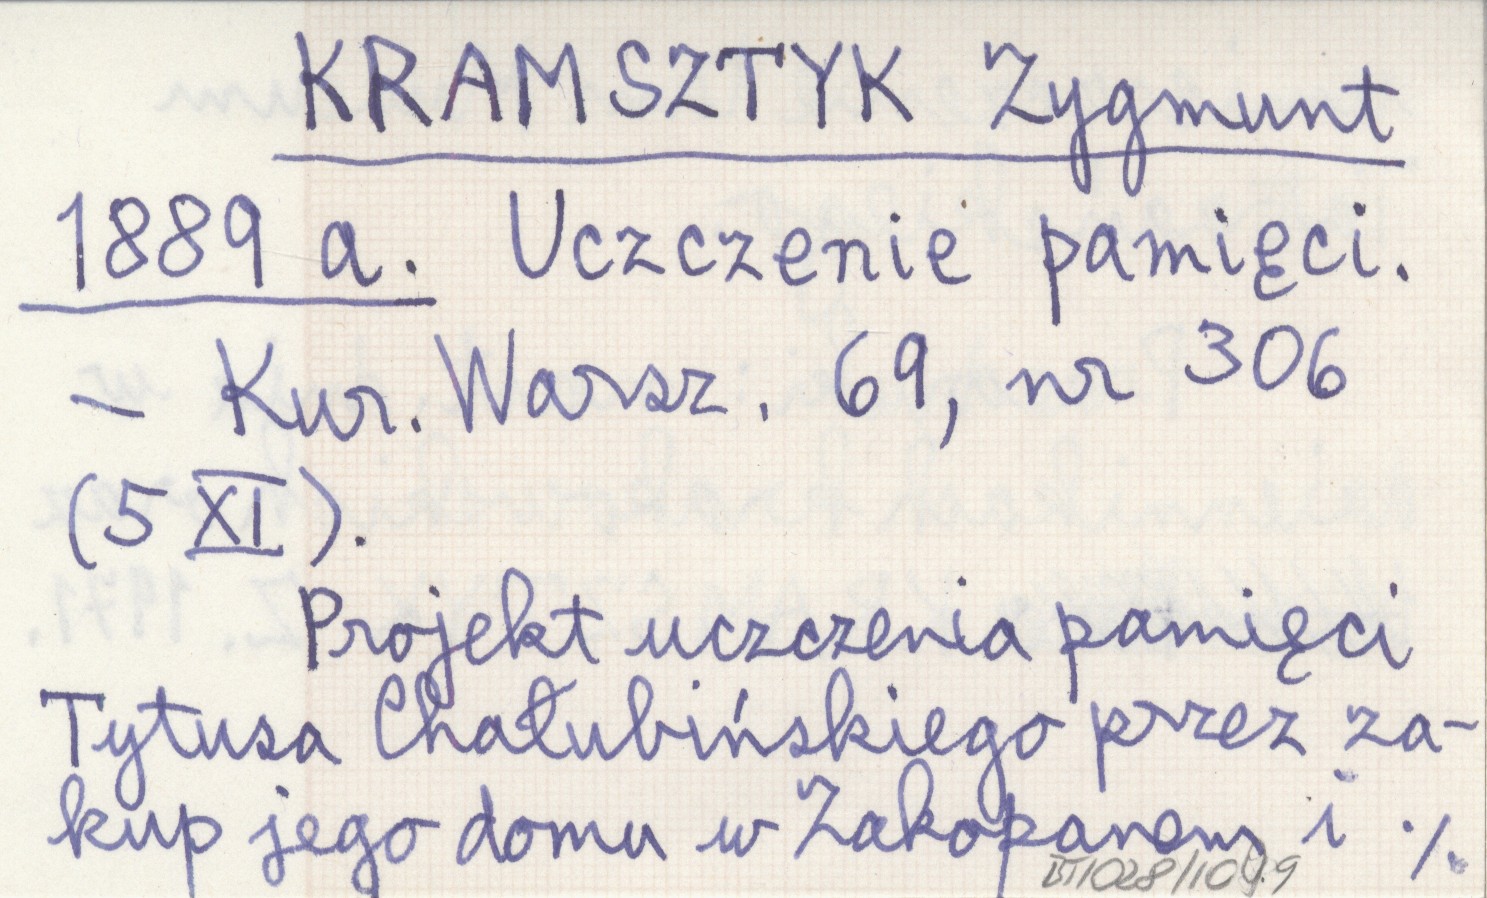 KRAMSZTYK Zygmunt
1889 a. Uczczenie pamięci.
– Kur. Warsz. 69, nr 306
(5 XI).
Projekt uczczenia pamięci
Tytusa Chałubińskiego przez za-
kup jego domu w Zakopanem i ./.